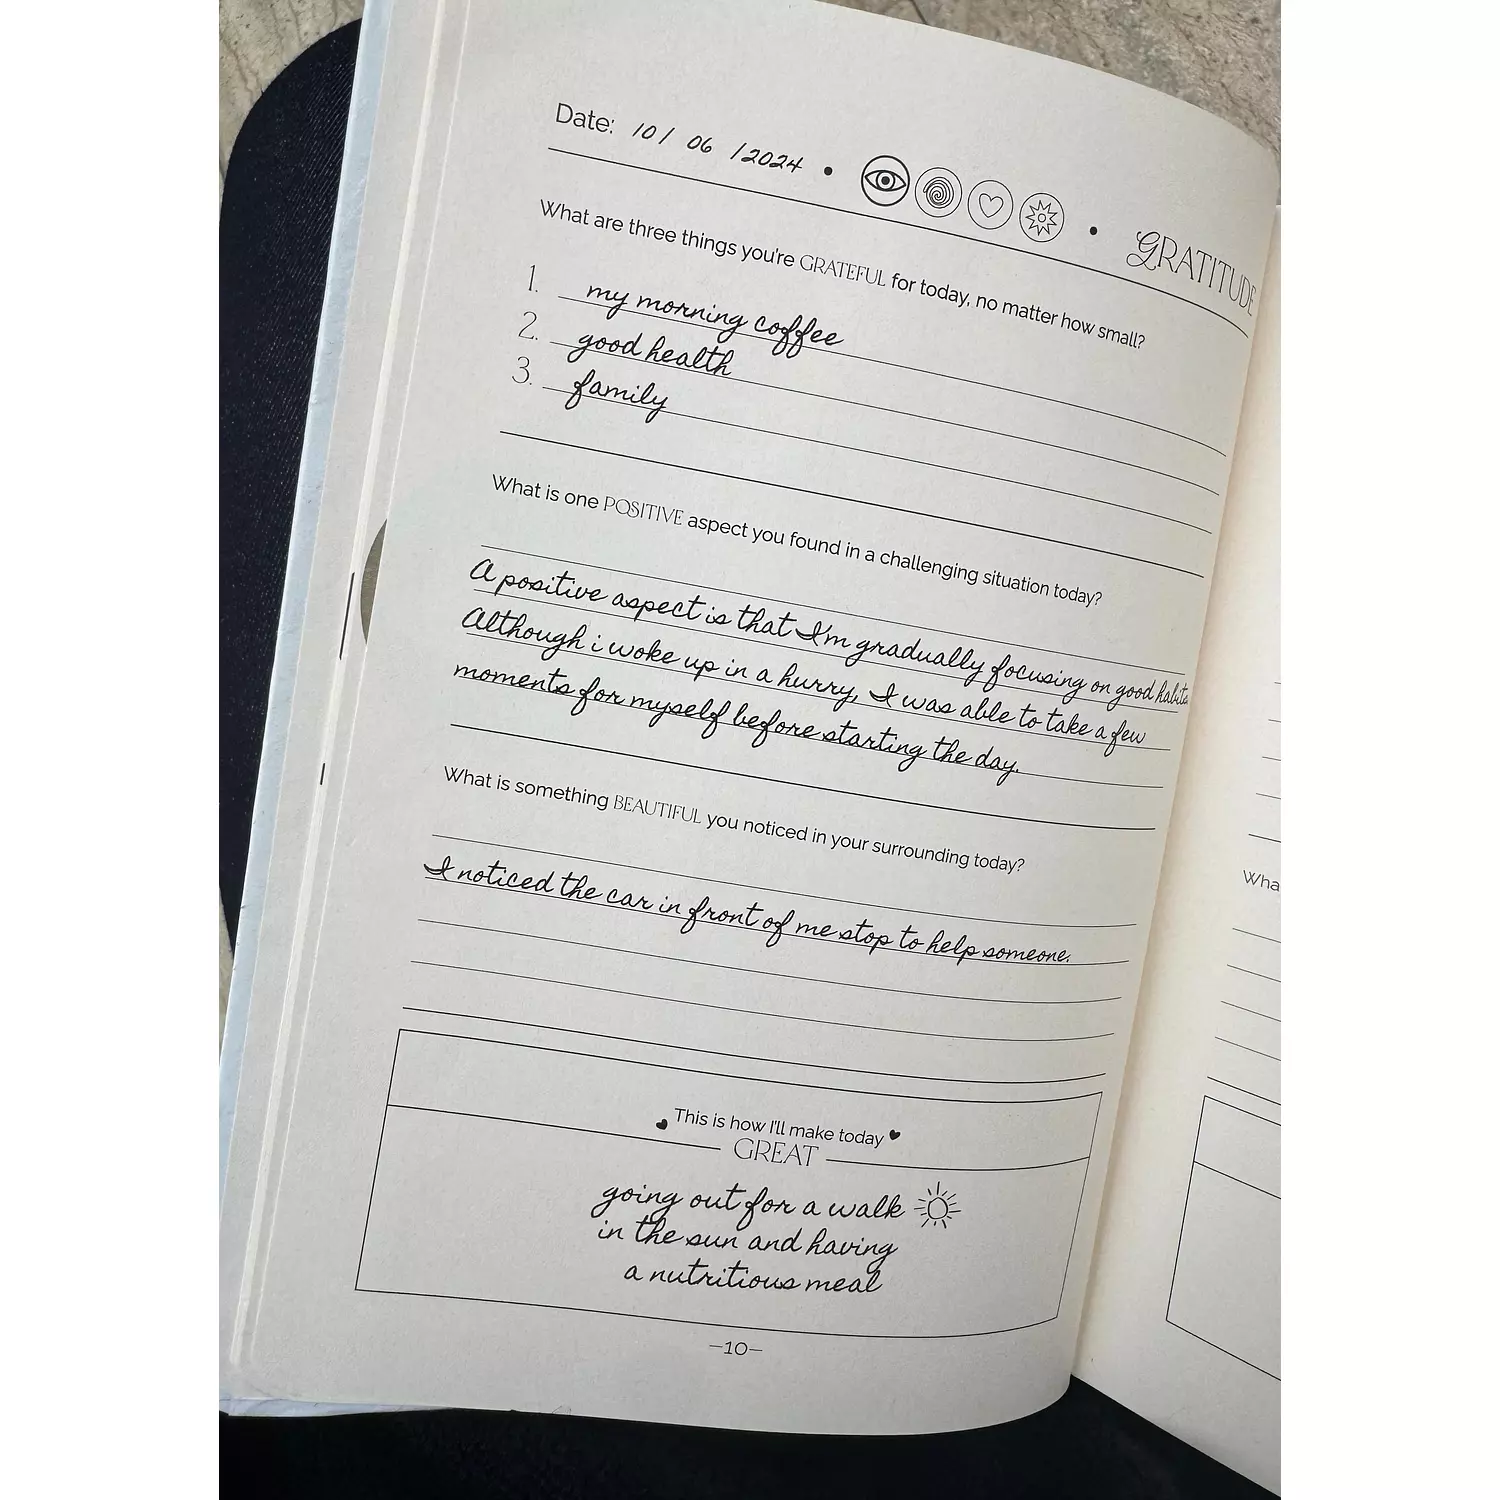 Date: 10/ 06 /2024 • • GRATITUDE
What are three things you're GRATEFUL for today, no matter how small?
1. my morning coffee
2. good health
3. family
What is one POSITIVE aspect you found in a challenging situation today?
A positive aspect is that I'm gradually focusing on good habits
Although i woke up in a hurry, I was able to take a few
moments for myself before starting the day.
What is something BEAUTIFUL you noticed in your surrounding today?
I noticed the car in front of me stop to help someone.
This is how I'll make today
GREAT
going out for a walk
in the sun and having
a nutritious meal
–10–
Wha